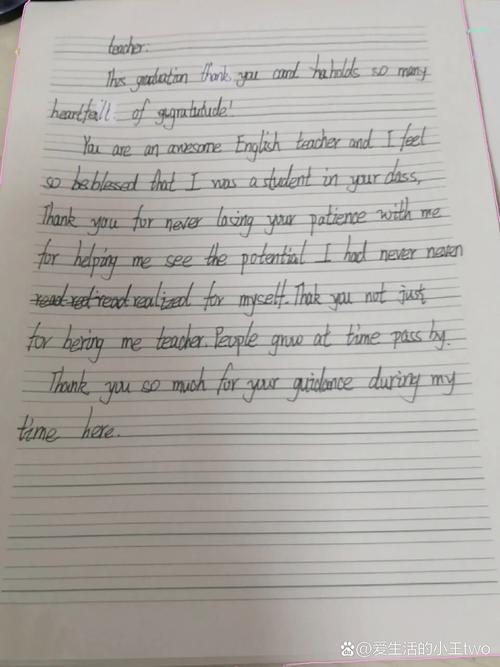 teacher:
This graduation thank you card haholds so many
heartfeill of gugratutude!
You are an awesome English teacher and I feel
so beblessed that I was a student in your class,
Thank you for never losing your patience with me
for helping me see the potential I had never neven
read red read realized for myself. Thak you not just
for bering me teacher. People grow at time pass by.
Thank you so much for your guidance during my
time here.
@爱生活的小王two